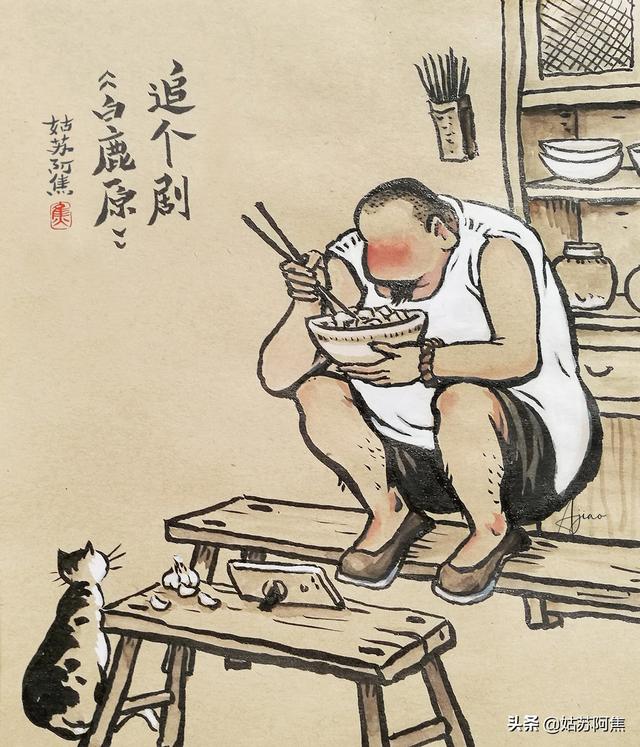 追个剧
《白鹿原》
姑苏阿焦
焦
Ajiao
头条 @姑苏阿焦